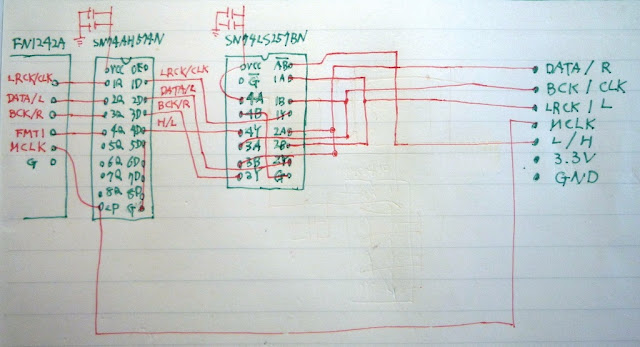 FN1242A
LRCK/CLK
DATA/L
BCK/R
FMT1
MCLK
G
SN74AH574N
VCC OE
1Q 1D
2Q 2D
3Q 3D
4Q 4D
5Q 5D
6Q 6D
7Q 7D
8Q 8D
CP G
LRCK/CLK
DATA/L
BCK/R
H/L
SN74LS257BN
VCC AB
G 1A
4A 1B
4B 1Y
4Y 2A
3A 2B
3B 2Y
3Y G
DATA/R
BCK/CLK
LRCK/L
MCLK
L/H
3.3V
GND